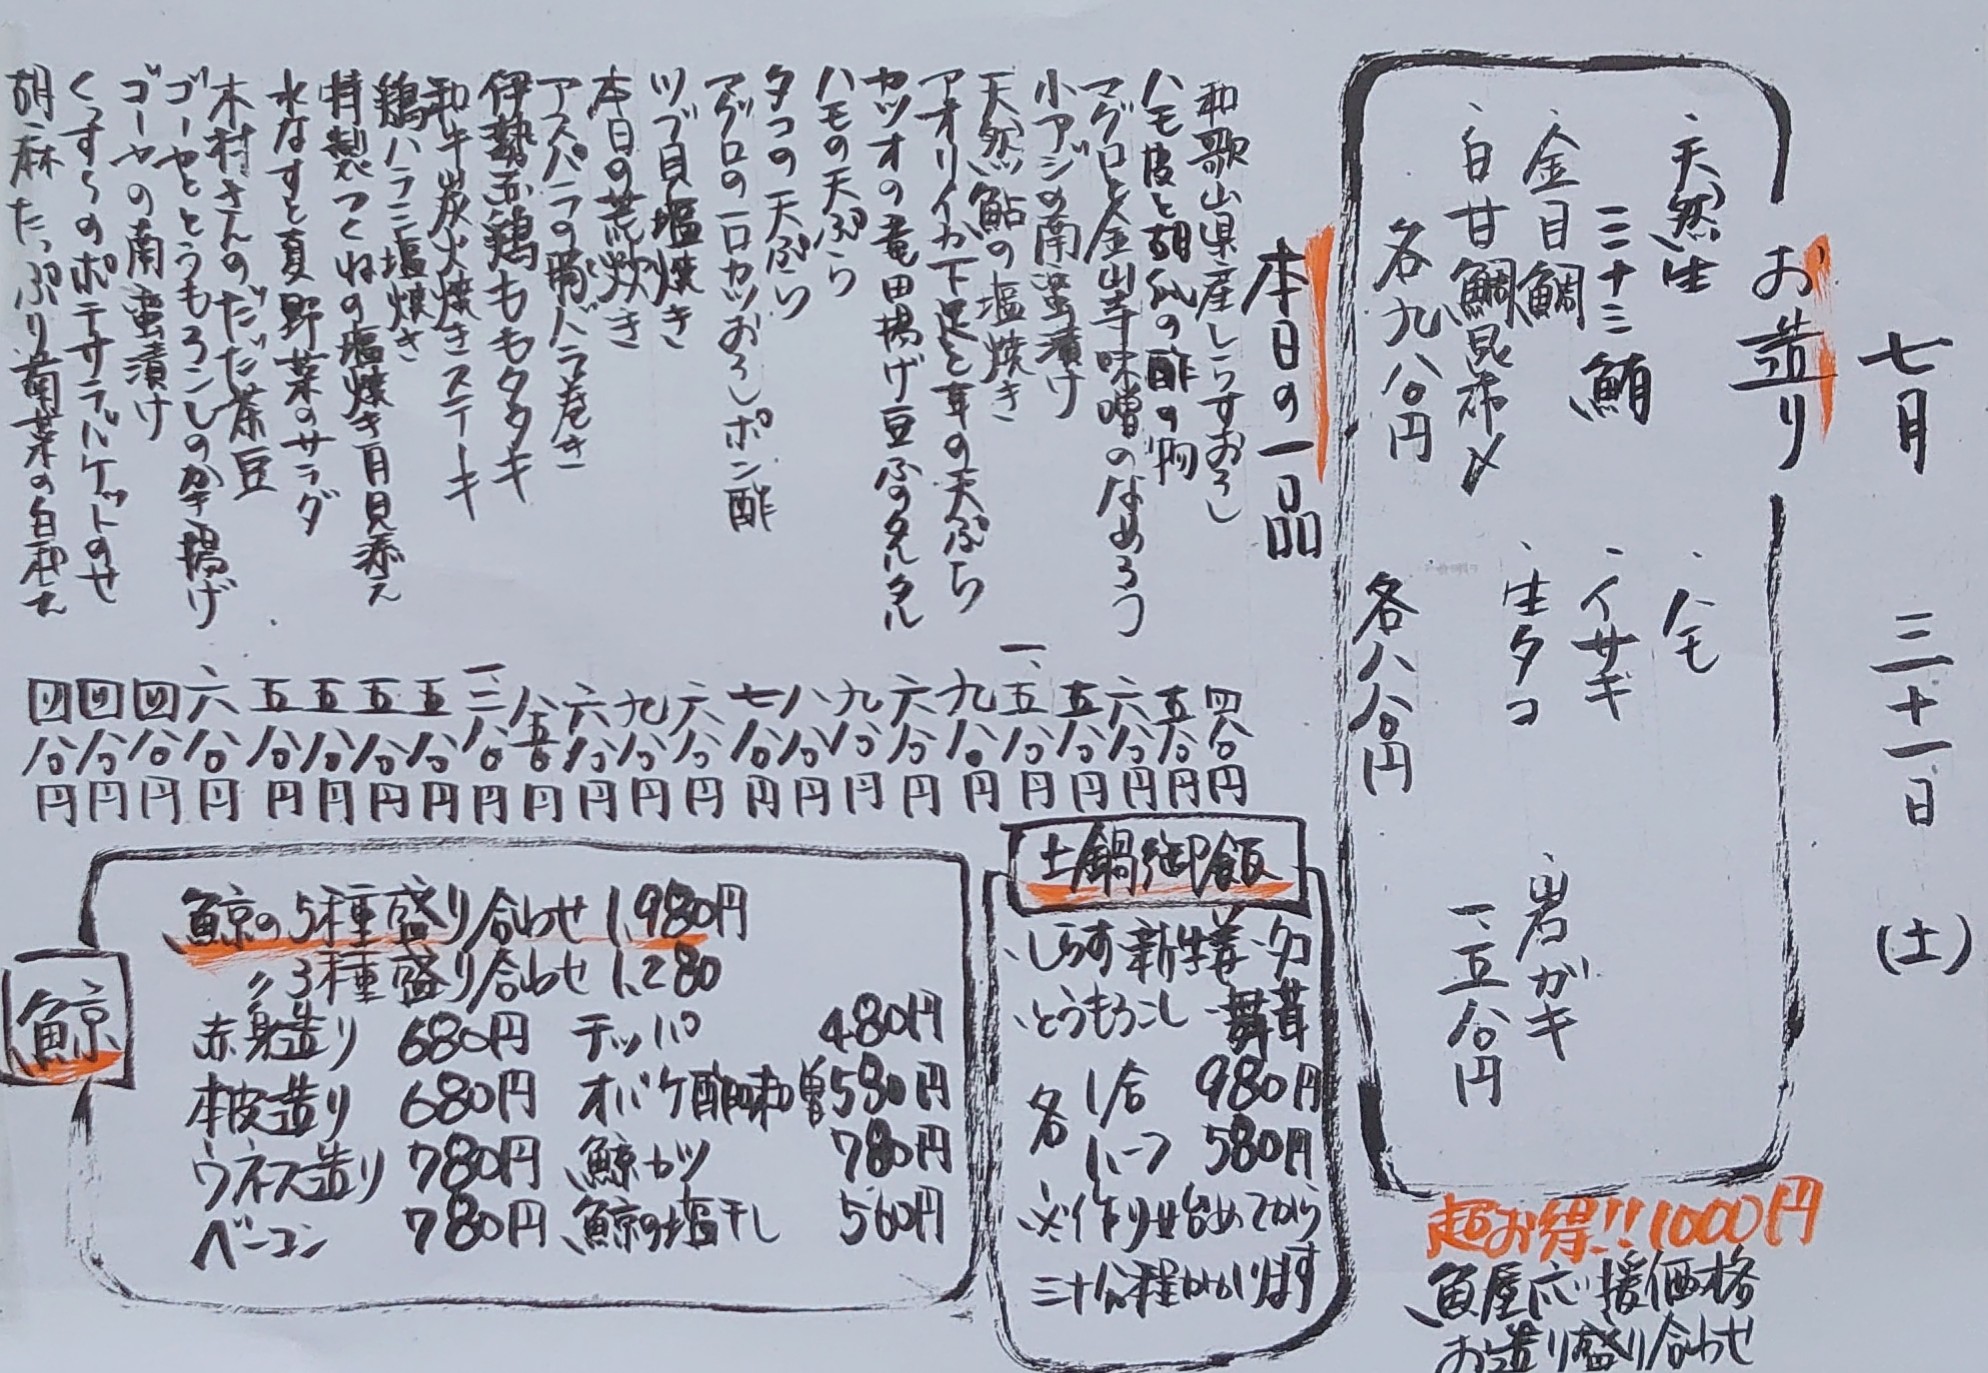 七月 三十一日 (土)
お造り
・天然生
ミナミ鮪
・金目鯛
・白甘鯛昆布〆
各九八〇円
・ハモ
・イサギ
・生タコ
各八八〇円
・岩ガキ
一、五八〇円
超お得!!1000円
魚屋応援価格
お造り盛り合わせ
本日の一品
和歌山県産しらすおろし 四八〇円
ハモ皮と胡瓜の酢の物 五八〇円
マグロと金山寺味噌のなめろう 六八〇円
小アジの南蛮漬け 五八〇円
天然鮎の塩焼き 一、五八〇円
アオリイカ下足と耳の天ぷら 九八〇円
カツオの竜田揚げ豆ふのタルタル 六八〇円
ハモの天ぷら 九八〇円
タコの天ぷら 八八〇円
マグロの一口カツおろしポン酢 七八〇円
ツブ貝塩焼き 六八〇円
本日の荒炊き 九八〇円
アスパラの豚バラ巻き 六八〇円
伊勢赤鶏ももタタキ 八五〇円
和牛炭火焼きステーキ 一、二八〇円
鶏ハラミ塩焼き 五八〇円
特製つくねの塩焼き月見添え 五八〇円
水なすと夏野菜のサラダ 五八〇円
木村さんのだだ茶豆 五八〇円
ゴーヤととうもろこしのかき揚げ 六八〇円
ゴーヤの南蛮漬け 四八〇円
のポテサラバケットのせ 四八〇円
胡麻たっぷり菜の白和え 四八〇円
土鍋御飯
・しらす・新生姜・タコ
・とうもろこし・舞茸
各 1合 980円
ハーフ 580円
※作り始めてから
三十分程かかります
鯨
鯨の5種盛り合わせ 1,980円
〃3種盛り合わせ 1,280
赤身造り 680円 テッパ 480円
本皮造り 680円 オバケ酢味噌 580円
ウネス造り 780円 鯨カツ 780円
ベーコン 780円 鯨の塩干し 560円